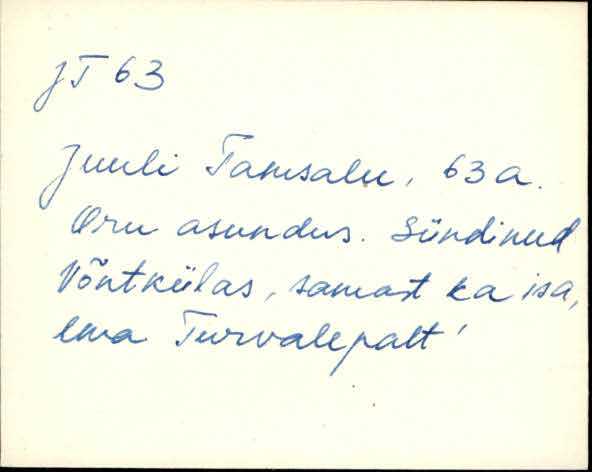 JT 63
Juuli Tamsalu, 63 a.
Oru asundus. Sündinud
Võntkülas, samast ka isa,
ema Turvalepalt!